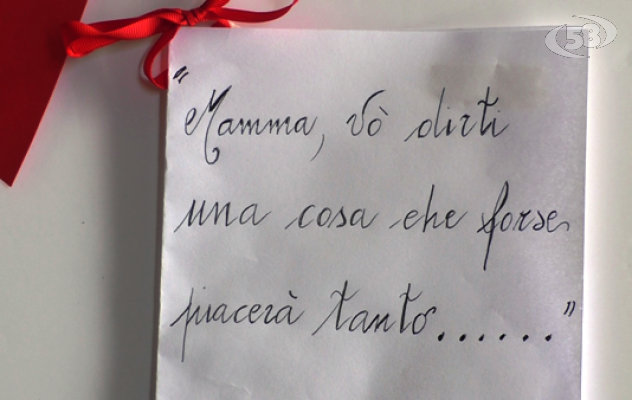 53
"Mamma, vò dirti
una cosa che forse
piacerà tanto......"